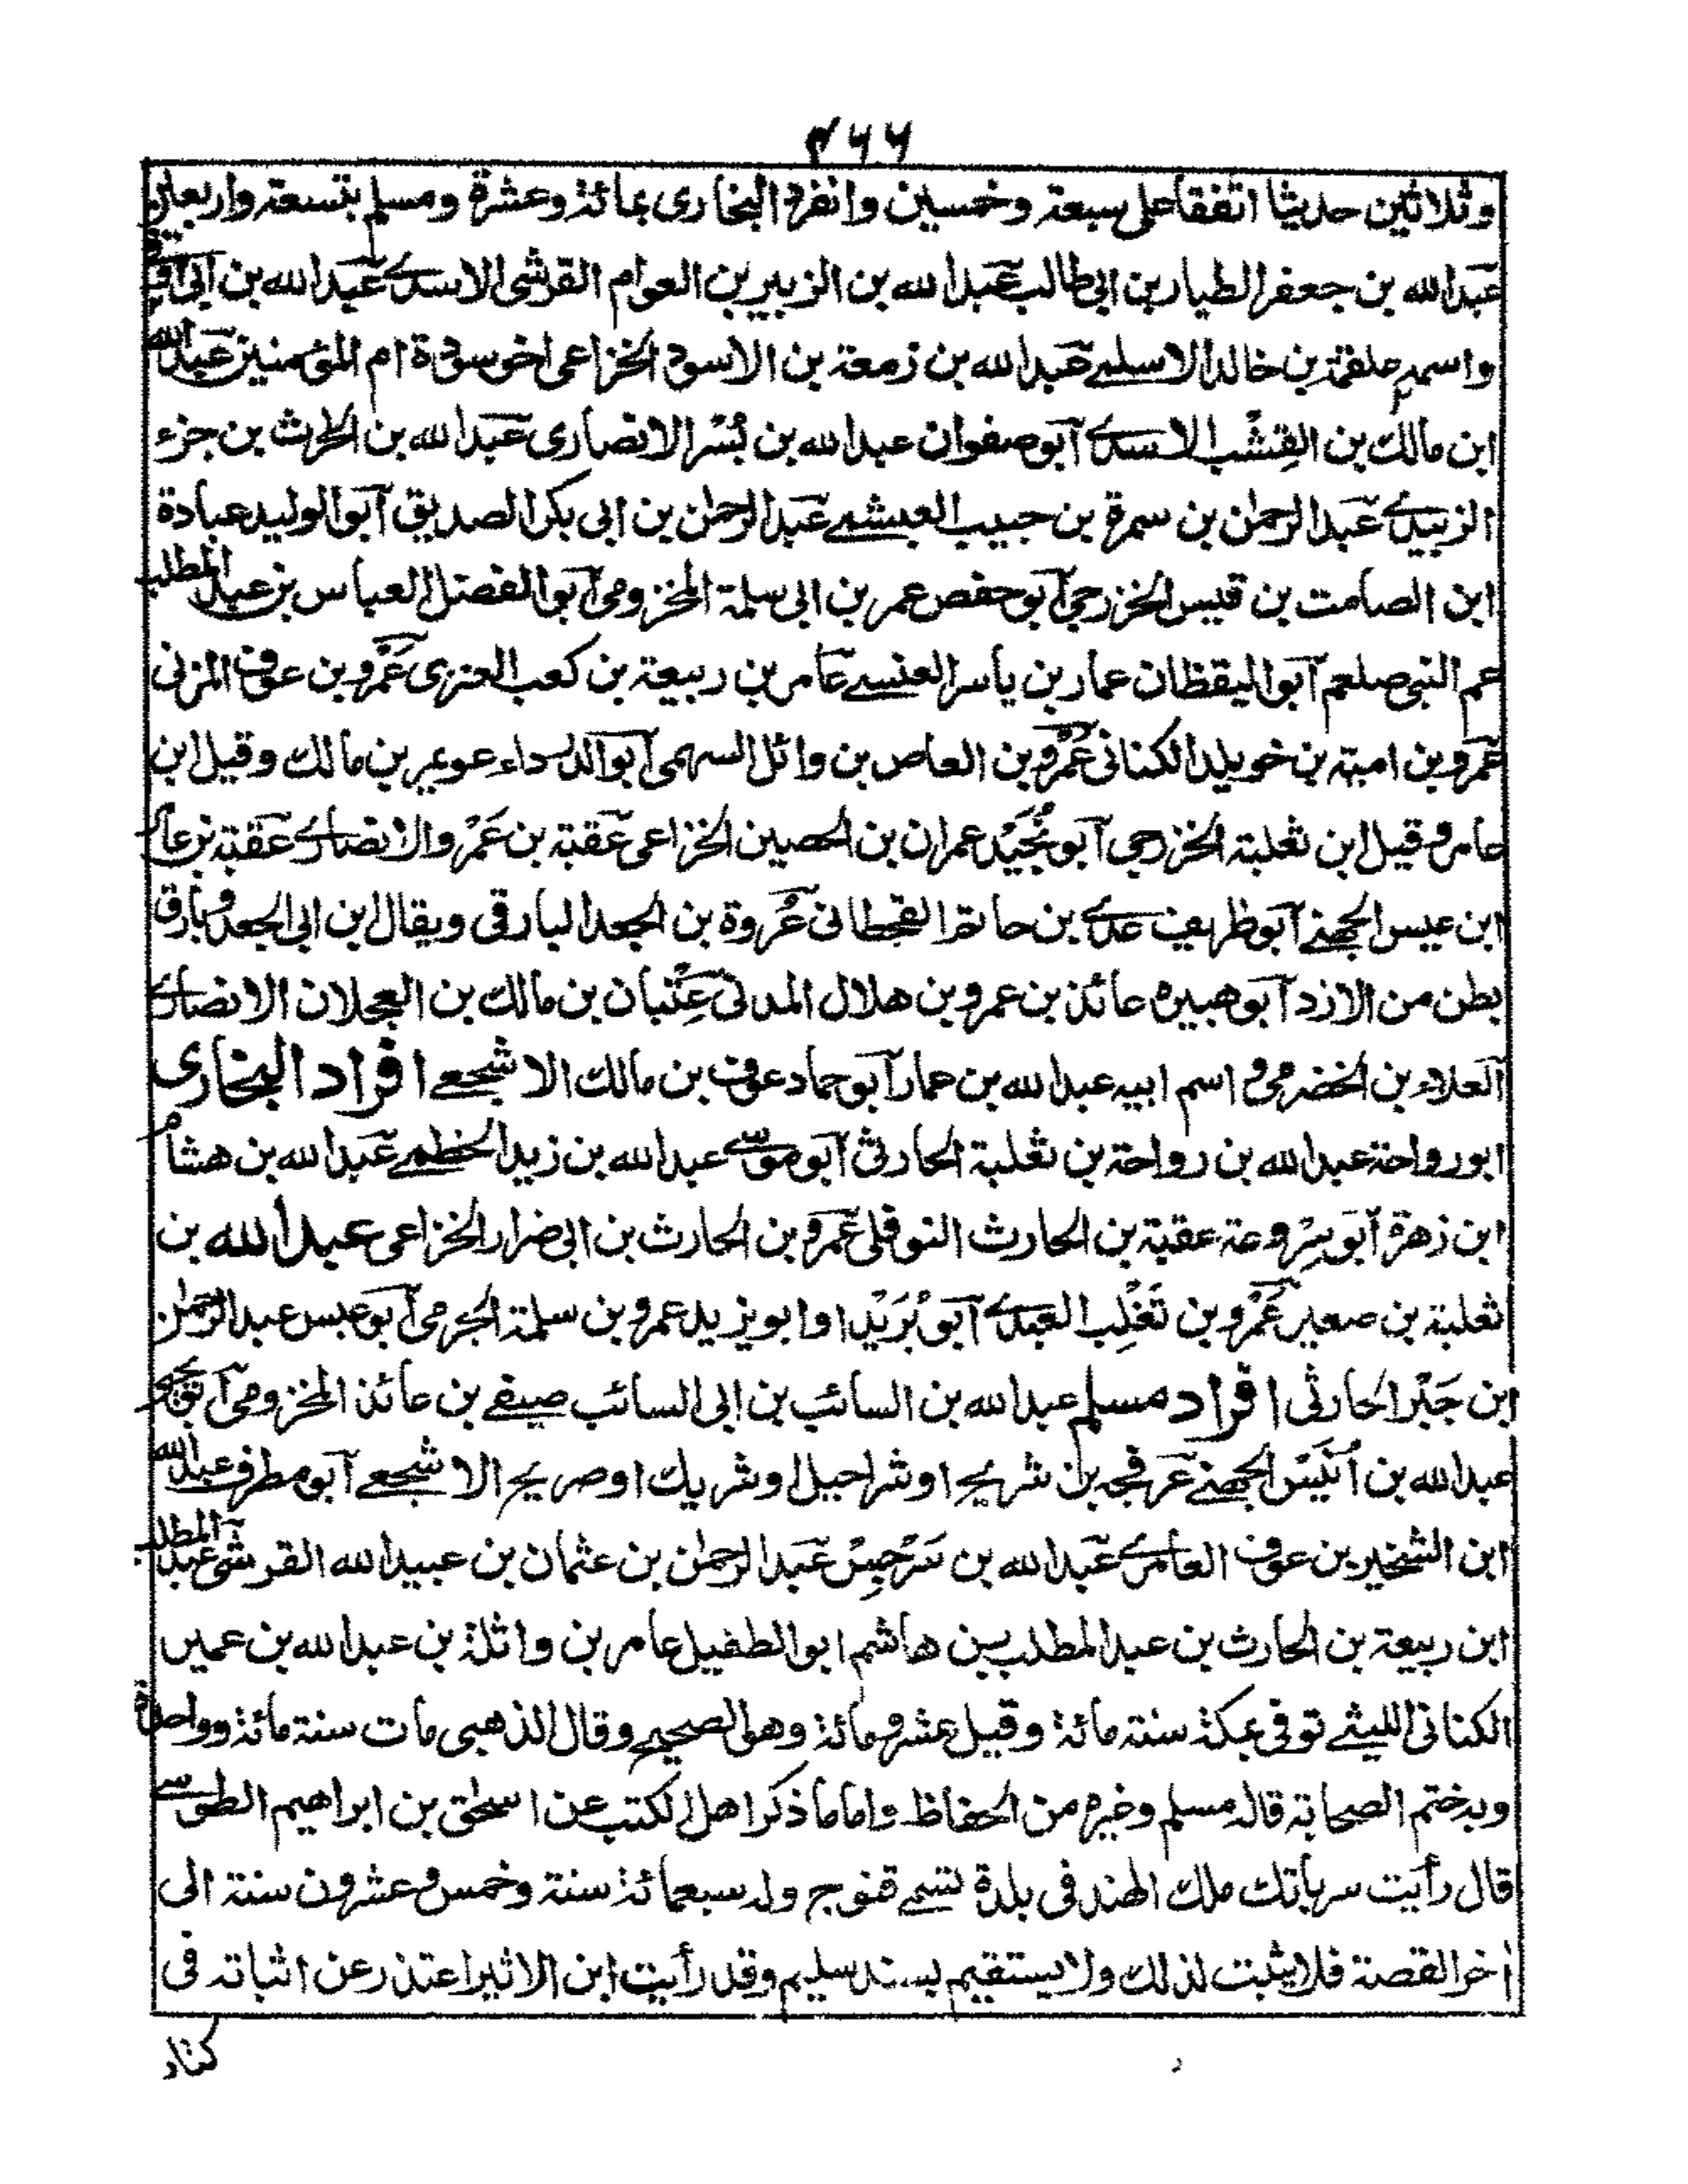 ۴۶۶
وثلاثين حديثا اتفقا على سبعة وخمسين وانفرد البخارى بمائة وعشرة ومسلم بتسعة واربعين
عبدالله بن جعفر الطيار بن ابى طالب عبدالله بن الزبير بن العوام القرشى الاسدے عبدالله بن ابى اوفى
واسمه علقمة بن خالد الاسلمے عبدالله بن زمعة بن الاسود الخزاعى اخو سودة ام المؤمنين عبدالله
ابن مالك بن القِشْب الاسدے ابوصفوان عبدالله بن بُسْر الانصارى عبدالله بن الحرث بن جزء
الزبيدے عبدالرحمن بن سمرة بن حبيب العبشمے عبدالرحمن بن ابى بكر الصديق ابوالوليد عبادة
ابن الصامت بن قيس الخزرجى ابوحفص عمر بن ابى سلمة المخزومى ابوالفضل العباس بن عبدالمطلب
عم النبى صلعم ابواليقظان عمار بن ياسر العنسے عامر بن ربيعة بن كعب العنزى عَمْرو بن عوف المزنى
عمرو بن امية بن خويلد الكنانى عَمْرو بن العاص بن وائل السهمى ابوالدرداء عويمر بن مالك وقيل ابن
عامر وقيل ابن ثعلبة الخزرجى ابو نُجَيْد عمران بن الحصين الخزاعى عقبة بن عَمْرو الانصارے عقبة بن عامر
ابن عبس الجهنے ابوظريف عدے بن حاتم القحطانى عُروة بن الجعد البارقى ويقال ابن ابى الجعد وبارق
بطن من الازد ابوهبيره عائذ بن عمرو بن هلال المدنى عِتْبان بن مالك بن العجلان الانصارے
العلاء بن الخضرمى واسم ابيه عبدالله بن عمار ابوحماد عوف بن مالك الاشجعے افراد البخارى
ابورواحة عبدالله بن رواحة بن ثعلبة الحارثى ابوموسے عبدالله بن زيد الخطمے عبدالله بن هشام
ابن زهرة ابوسِرْوعة عقبة بن الحارث النوفلى عمرو بن الحارث بن ابى ضرار الخزاعى عبدالله بن
ثعلبة بن صعير عَمْرو بن تَغْلِب العبدے ابو بُرَيْد او ابو يزيد عمرو بن سلمة الجرمى ابوعبس عبدالرحمن
ابن جَبْر الحارثى افراد مسلم عبدالله بن السائب بن ابى السائب صيفے بن عائذ المخزومى ابو يحيى
عبدالله بن اُنَيْس الجهنے عرفجه بن شريح او شراحيل او شريك او صريح الاشجعے ابومطرف عبدالله
ابن الشخير بن عوف العامرے عبدالله بن سَرْجِسْ عبدالرحمن بن عثمان بن عبيدالله القرشى عبدالمطلب
ابن ربيعة بن الحارث بن عبدالمطلب بن هاشم ابوالطفيل عامر بن واثلة بن عبدالله بن عمير
الكنانى الليثے توفى بمكة سنة مائة وقيل عشر ومائة وهو الصحيح وقال الذهبى مات سنة مائة وواحدة
وبه ختم الصحابة قاله مسلم وغيره من الحفاظ واما ما ذكر اهل الكتب عن اسحق بن ابراهيم الطوسے
قال رأيت سرباتك ملك الهند فى بلدة تسمے قنوج وله سبعمائة سنة وخمس وعشرون سنة الى
اخر القصة فلا يثبت لذلك ولا يستقيم بسند سليم وقد رأيت ابن الاثير اعتذر عن اثباته فى
كتاب